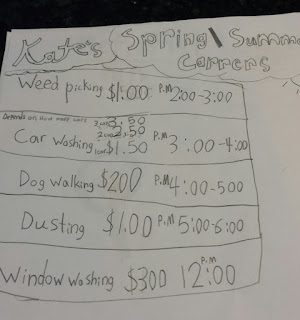 Kate's Spring\Summe
Carrers
Weed picking $1.00 P.M 2:00-3:00
Depends on how many cars 3 cars 3.50
2 cars 2.50
Car Washing 1 car $1.50 P.M 3:00-4:00
Dog Walking $200 P.M 4:00-500
Dusting $1.00 P.M 5:00-6:00
Window Washing $300 12:00 P.M